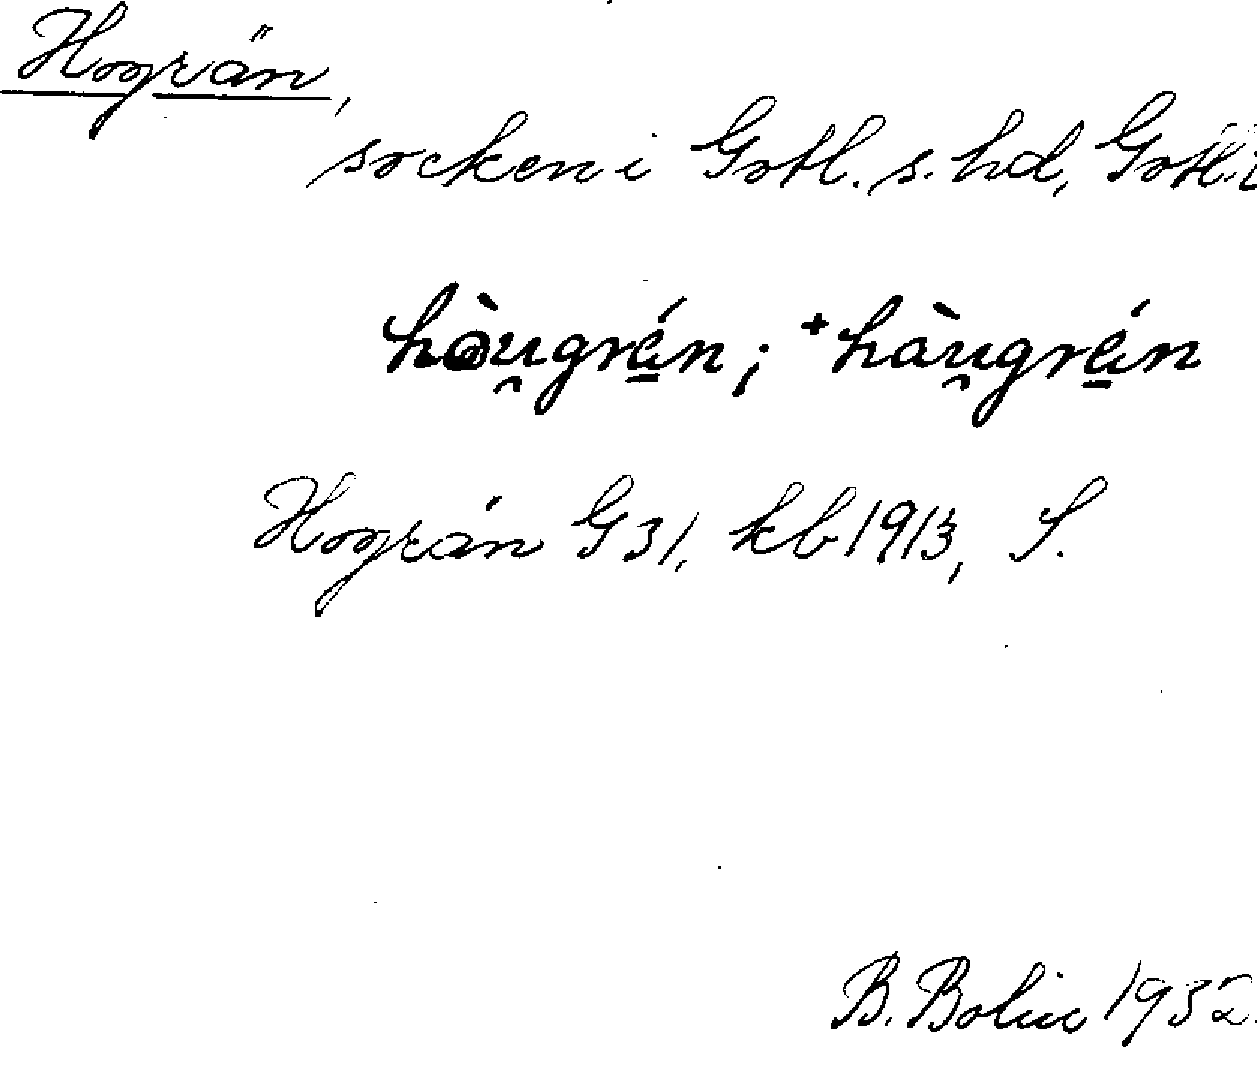 Hogrän,
socken i Gotl. s. hd, Gotl. l
hòu̯grá̲n; ⁺hàu̯grá̲n
Hográn G 31, kb 1913, S.
B. Bolin 1932.